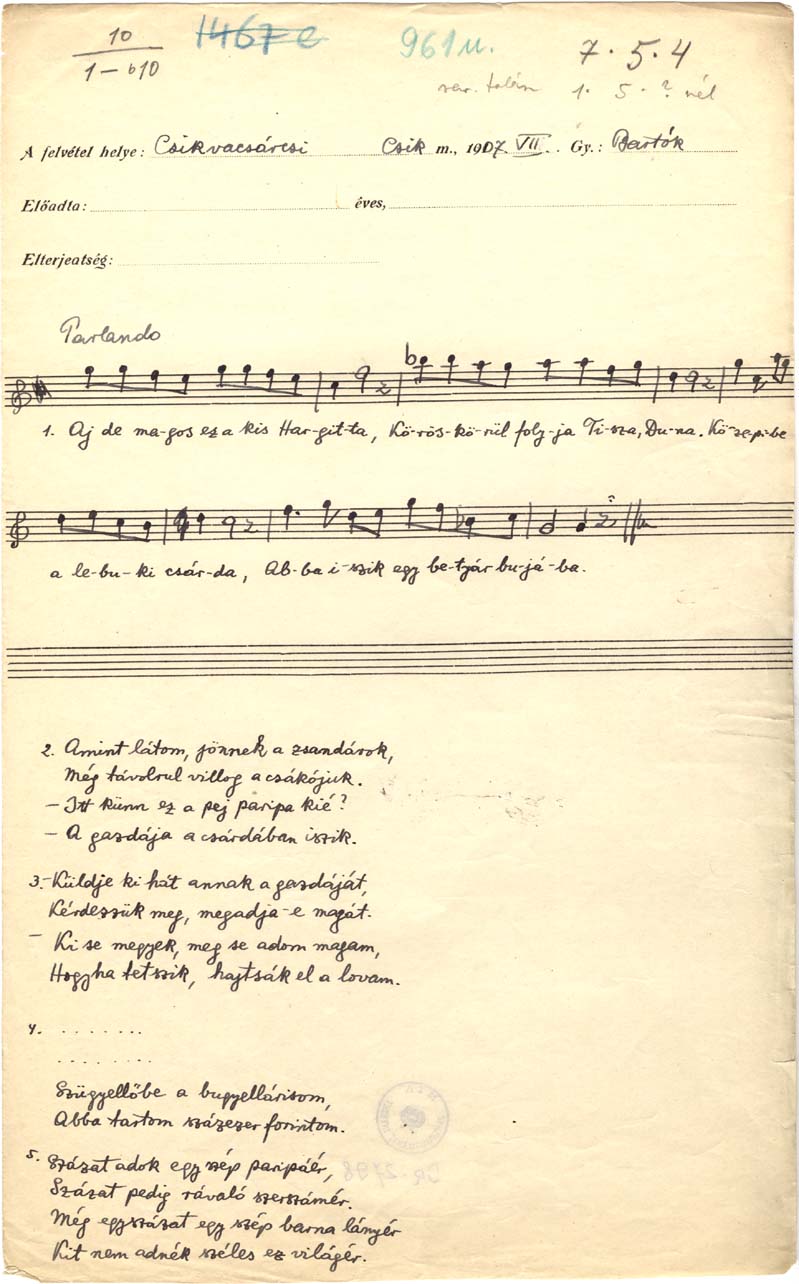 10
1-610
1467 e
961 u.
7. 5. 4
1. 5. ? nél
A felvétel helye: Csikvacsárcsi Csik m., 1907. VII. Gy.: Bartók
Előadta: éves,
Elterjeatség:
Parlando
1. Aj de ma-gos ez a kis Har-git-ta, Kö-rös-kö-rül foly-ja Ti-sza, Du-na. Kö-ze-pi-be
a le-bu-ki csár-da, Ab-ba i-szik egy be-tyár bu-já-ba.
2. Amint látom, jönnek a zsandárok,
Még távolrul villog a csákójuk.
- Itt künn ez a pej paripa kié?
- A gazdája a csárdában iszik.
3. - Küldje ki hát annak a gazdáját,
Kérdezzük meg, megadja-e magát.
- Ki se megyek, meg se adom magam,
Hogyha tetszik, hajtsák el a lovam.
4. . . . . . . .
. . . . . . . .
Szügyellőbe a bugyellárisom,
Abba tartom százezer forintom.
5. Százat adok egy szép paripáér,
Százat pedig rávaló szerszámér.
Még egyszázat egy szép barna lányér
Kit nem adnék széles ez világér.